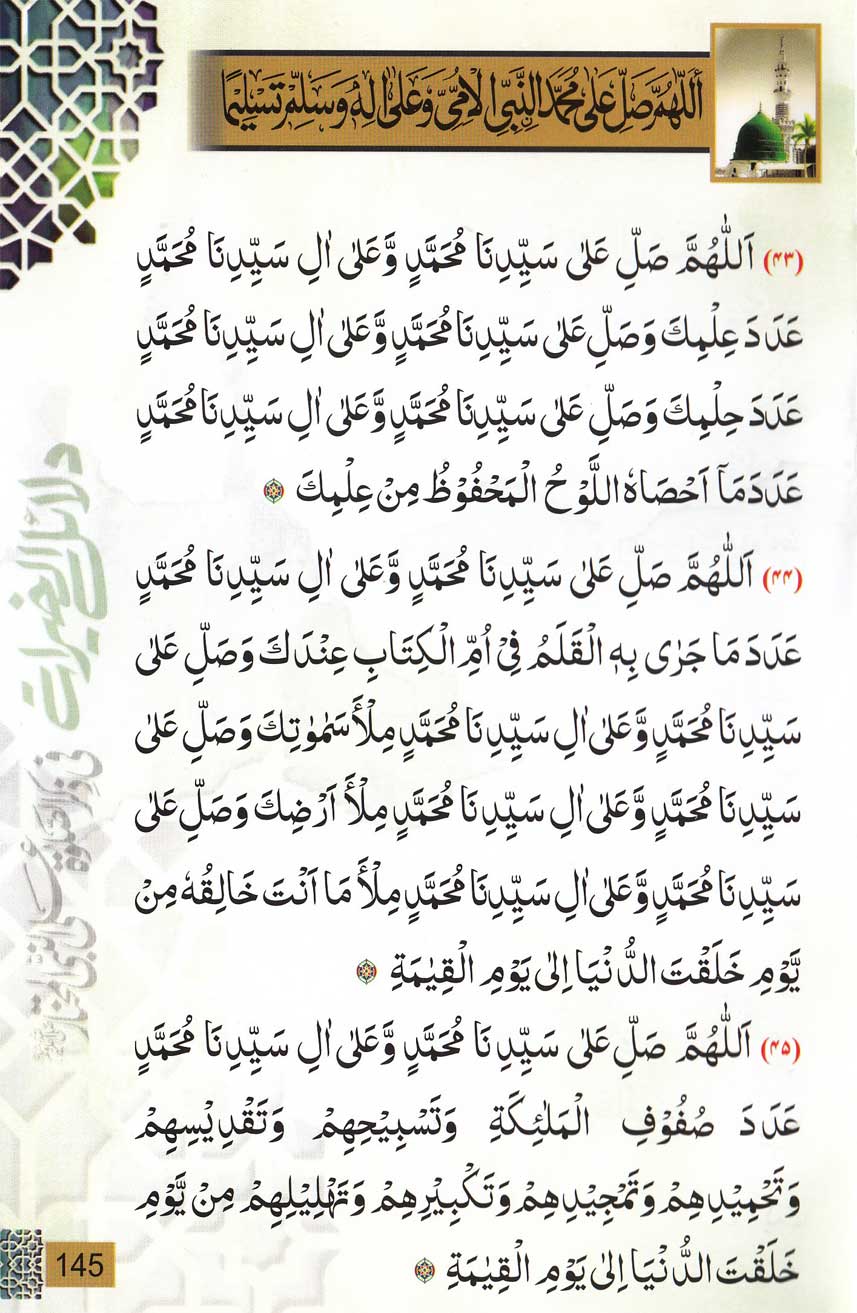 اَللّٰهُمَّ صَلِّ عَلٰى مُحَمَّدِ النَّبِيِّ الْاُمِّيِّ وَعَلٰى اٰلِهٖ وَسَلِّمْ تَسْلِيْمًا
(۴۳) اَللّٰهُمَّ صَلِّ عَلٰى سَيِّدِنَا مُحَمَّدٍ وَّعَلٰى اٰلِ سَيِّدِنَا مُحَمَّدٍ
عَدَدَ عِلْمِكَ وَصَلِّ عَلٰى سَيِّدِنَا مُحَمَّدٍ وَّعَلٰى اٰلِ سَيِّدِنَا مُحَمَّدٍ
عَدَدَ حِلْمِكَ وَصَلِّ عَلٰى سَيِّدِنَا مُحَمَّدٍ وَّعَلٰى اٰلِ سَيِّدِنَا مُحَمَّدٍ
عَدَدَ مَآ اَحْصَاهُ اللَّوْحُ الْمَحْفُوْظُ مِنْ عِلْمِكَ
(۴۴) اَللّٰهُمَّ صَلِّ عَلٰى سَيِّدِنَا مُحَمَّدٍ وَّعَلٰى اٰلِ سَيِّدِنَا مُحَمَّدٍ
عَدَدَ مَا جَرٰى بِهِ الْقَلَمُ فِيْ اُمِّ الْكِتَابِ عِنْدَكَ وَصَلِّ عَلٰى
سَيِّدِنَا مُحَمَّدٍ وَّعَلٰى اٰلِ سَيِّدِنَا مُحَمَّدٍ مِلْأَ سَمٰوٰتِكَ وَصَلِّ عَلٰى
سَيِّدِنَا مُحَمَّدٍ وَّعَلٰى اٰلِ سَيِّدِنَا مُحَمَّدٍ مِلْأَ اَرْضِكَ وَصَلِّ عَلٰى
سَيِّدِنَا مُحَمَّدٍ وَّعَلٰى اٰلِ سَيِّدِنَا مُحَمَّدٍ مِلْأَ مَا اَنْتَ خَالِقُهٗ مِنْ
يَّوْمِ خَلَقْتَ الدُّنْيَا اِلٰى يَوْمِ الْقِيٰمَةِ
(۴۵) اَللّٰهُمَّ صَلِّ عَلٰى سَيِّدِنَا مُحَمَّدٍ وَّعَلٰى اٰلِ سَيِّدِنَا مُحَمَّدٍ
عَدَدَ صُفُوْفِ الْمَلٰئِكَةِ وَتَسْبِيْحِهِمْ وَتَقْدِيْسِهِمْ
وَتَحْمِيْدِهِمْ وَتَمْجِيْدِهِمْ وَتَكْبِيْرِهِمْ وَتَهْلِيْلِهِمْ مِنْ يَّوْمِ
خَلَقْتَ الدُّنْيَا اِلٰى يَوْمِ الْقِيٰمَةِ
دلائل الخيرات
145